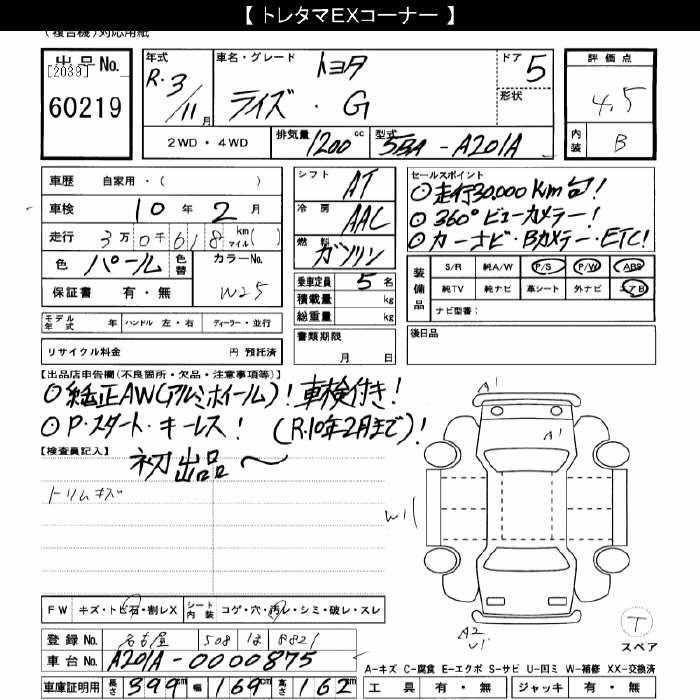 【 トレタマEXコーナー 】
(複合機)対応用紙
出品No. [2039] 60219
年式 R.3/11月
車名・グレード トヨタ ライズ・G
ドア 5
形状
評価点 4.5
内装 B
2WD・4WD
排気量 1200cc
型式 5BA-A201A
車歴 自家用・( )
車検 10年2月
走行 3万0千618 km マイル( )
色 パール 色替 カラーNo. W25
保証書 有・無
シフト AT
冷房 AAC
燃料 ガソリン
乗車定員 5名
積載量 kg
総重量 kg
セールスポイント
◎走行30,000Km台!
◎360°ビューカメラー!
◎カーナビ・Bカメラー・ETC!
装備品 S/R 純A/W P/S P/W ABS
純TV 純ナビ 革シート 外ナビ エアB
ナビ型番:
モデル年式 年 ハンドル 左・右 ディーラー・並行
リサイクル料金 円 預託済
書類期限 月 日
後日品
【出品店申告欄(不良箇所・欠品・注意事項等)】
◎純正AW(アルミホイール)!車検付き!
◎P.スタート・キーレス! (R.10年2月まで)!
初出品〜
【検査員記入】
トリムキズ
A1
A1
W1
A2
U1
T
スペア
FW キズ・トビ石・割レX シート内装 コゲ・穴・汚レ・シミ・破レ・スレ
登録No. 名古屋 508 は 8821
車台No. A201A-0000875
車庫証明用 長さ 399cm 幅 169cm 高さ 162cm
A-キズ C-腐食 E-エクボ S-サビ U-凹ミ W-補修 XX-交換済
工具 有・無 ジャッキ 有・無